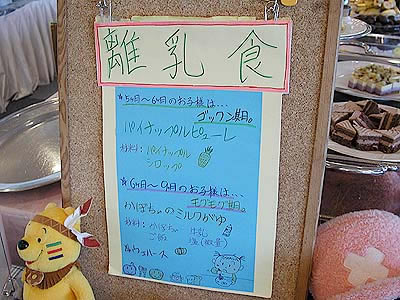 離乳食
★5ヶ月～6ヶ月のお子様は…
ゴックン期。
パイナップルピューレ
材料：パイナップル
シロップ
★6ヶ月～9ヶ月のお子様は…
モグモグ期。
かぼちゃのミルクがゆ
材料：かぼちゃ 牛乳
ご飯 塩(微量)